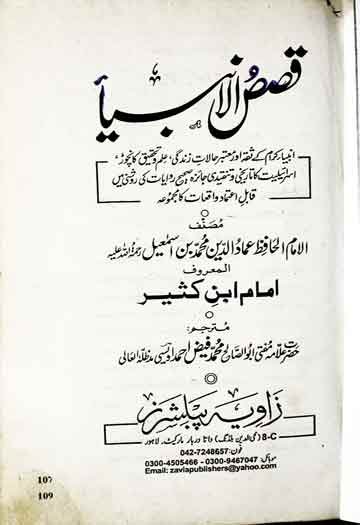 قصص الانبیأ
انبیاء کرام کے ثقہ اور معتبر حالاتِ زندگی، علم و تحقیق کا نچوڑ،
اسرائیلیت کا تاریخی و تنقیدی جائزہ صحیح روایات کی روشنی میں
قابلِ اعتماد واقعات کا مجموعہ
مصنف
الامام الحافظ عماد الدین محمد بن اسمٰعیل رحمۃ اللہ علیہ
المعروف
امام ابنِ کثیر
مترجم:
حضرت علامہ مفتی ابو الصالح محمد فیض احمد اویسی مدظلہ العالی
زاویہ پبلشرز
8-C (محی الدین بلڈنگ) داتا دربار مارکیٹ۔ لاہور
فون: 042-7248657
موبائل: 0300-9467047 - 0300-4505466
Email: zaviapublishers@yahoo.com
107
109